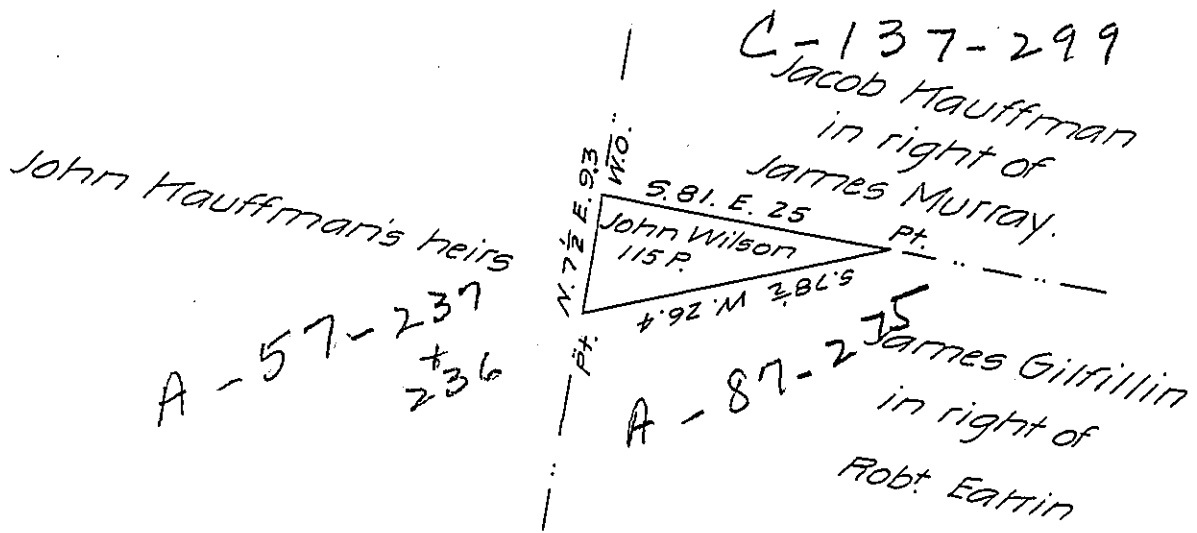 C-137-299
Jacob Kauffman
in right of
James Murray.
John Kauffman's heirs
A-57-237
+
236
N. 7 1/2 E. 9.3
W.O.
S. 81. E. 25
John Wilson
115 P.
Pt.
S. 78 1/2 W. 26.4
Pt.
A-87-275
James Gilfillin
in right of
Robt. Eakin